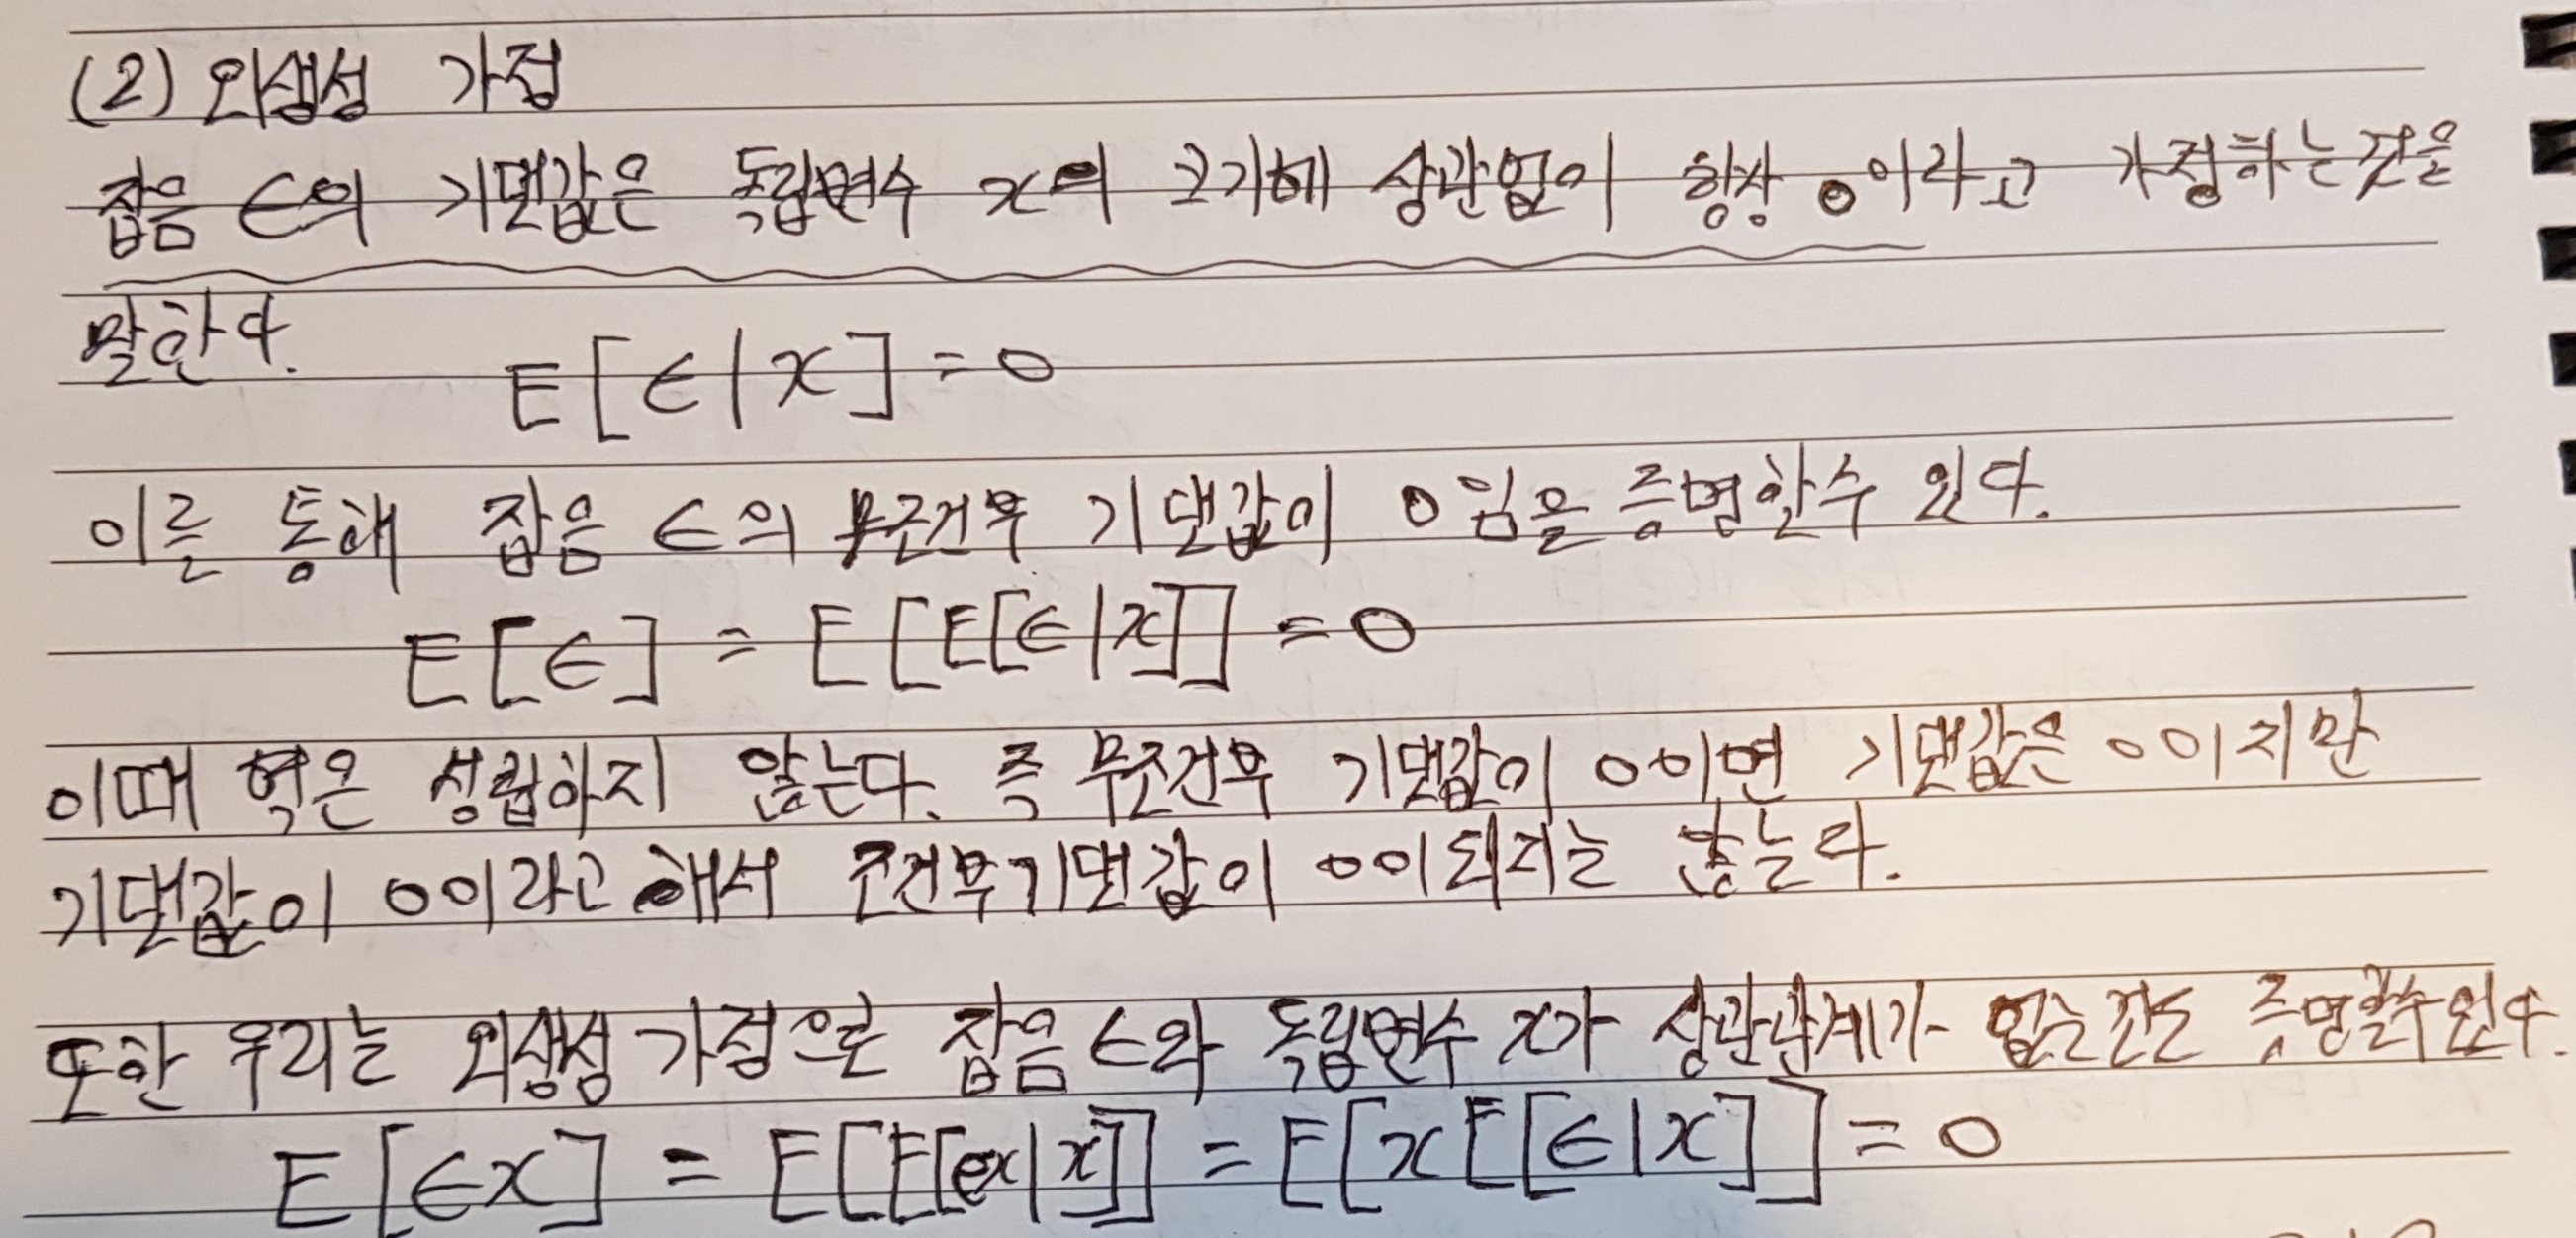 (2) 외생성 가정
잡음 ϵ의 기댓값은 독립변수 x의 크기에 상관없이 항상 0이라고 가정하는 것을
말한다.
E[ϵ|x]=0
이를 통해 잡음 ϵ의 무조건부 기댓값이 0임을 증명할수 있다.
E[ϵ] = E[E[ϵ|x]] = 0
이때 역은 성립하지 않는다. 즉 무조건부 기댓값이 0이면 기댓값은 0이지만
기댓값이 0이라고 해서 조건부기댓값이 0이되지는 않는다.
또한 우리는 외생성 가정으로 잡음 ϵ와 독립변수 x가 상관관계가 없는것도 증명할수있다.
E[ϵx] = E[E[ϵx|x]] = E[xE[ϵ|x]] = 0